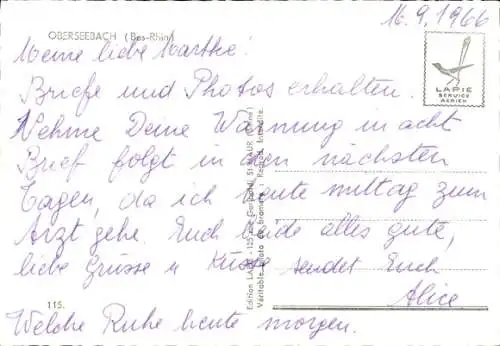 16.9.1966
OBERSEEBACH (Bas-Rhin)
Meine liebe
LAPIE
SERVICE
AERIEN
Briefe und Photos erhalten.
Nehme Deine Warnung in acht
Brief folgt in den nächsten
Tagen, da ich heute mittag zum
Arzt gehe. Euch beide alles gute,
liebe Grüsse u Küsse sendet Euch
115.
Alice
Welche Ruhe heute morgen.
Edition LAPIE - 125 rue Garibaldi St MAUR (Seine)
Véritable photo au bromure : Reprod. Interdite.